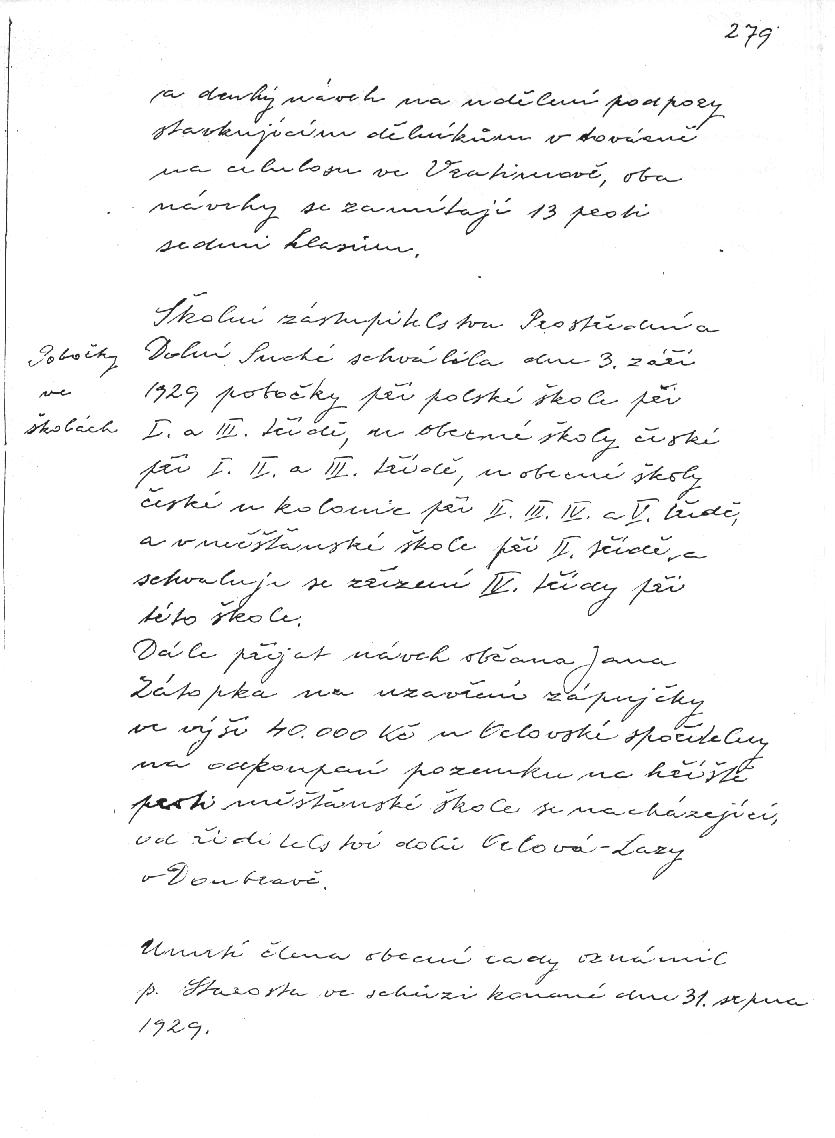 279
a druhý návrh na udělení podpory
stavkujícím dělníkům v továrně
na celulosu ve Vratimově, oba
návrhy se zamítají 13 proti
sedmi hlasům.
Školní zástupitelstva Prostřední a
Dolní Suché schválila dne 3. září
1929 pobočky při polské škole při
I. a III. třídě, u obecné školy české
při I. II. a III. třídě, u obecné školy
české u kolonie při II. III. IV. a V. třídě,
a v měšťanské škole při II. třídě, a
schvaluje se zřízení IV. třídy při
této škole.
Pobočky
ve
školách
Dále přijat návrh občana Jana
Zátopka na uzavření zápujčky
ve výši 40.000 Kč u Orlovské spořitelny
na odkoupaní pozemku na hřiště
proti měšťanské škole se nacházející,
od ředitelství dolů Orlová-Lazy
v Doubravě.
Umrtí člena obecní rady oznámil
p. Starosta ve schůzi konané dne 31. srpna
1929.